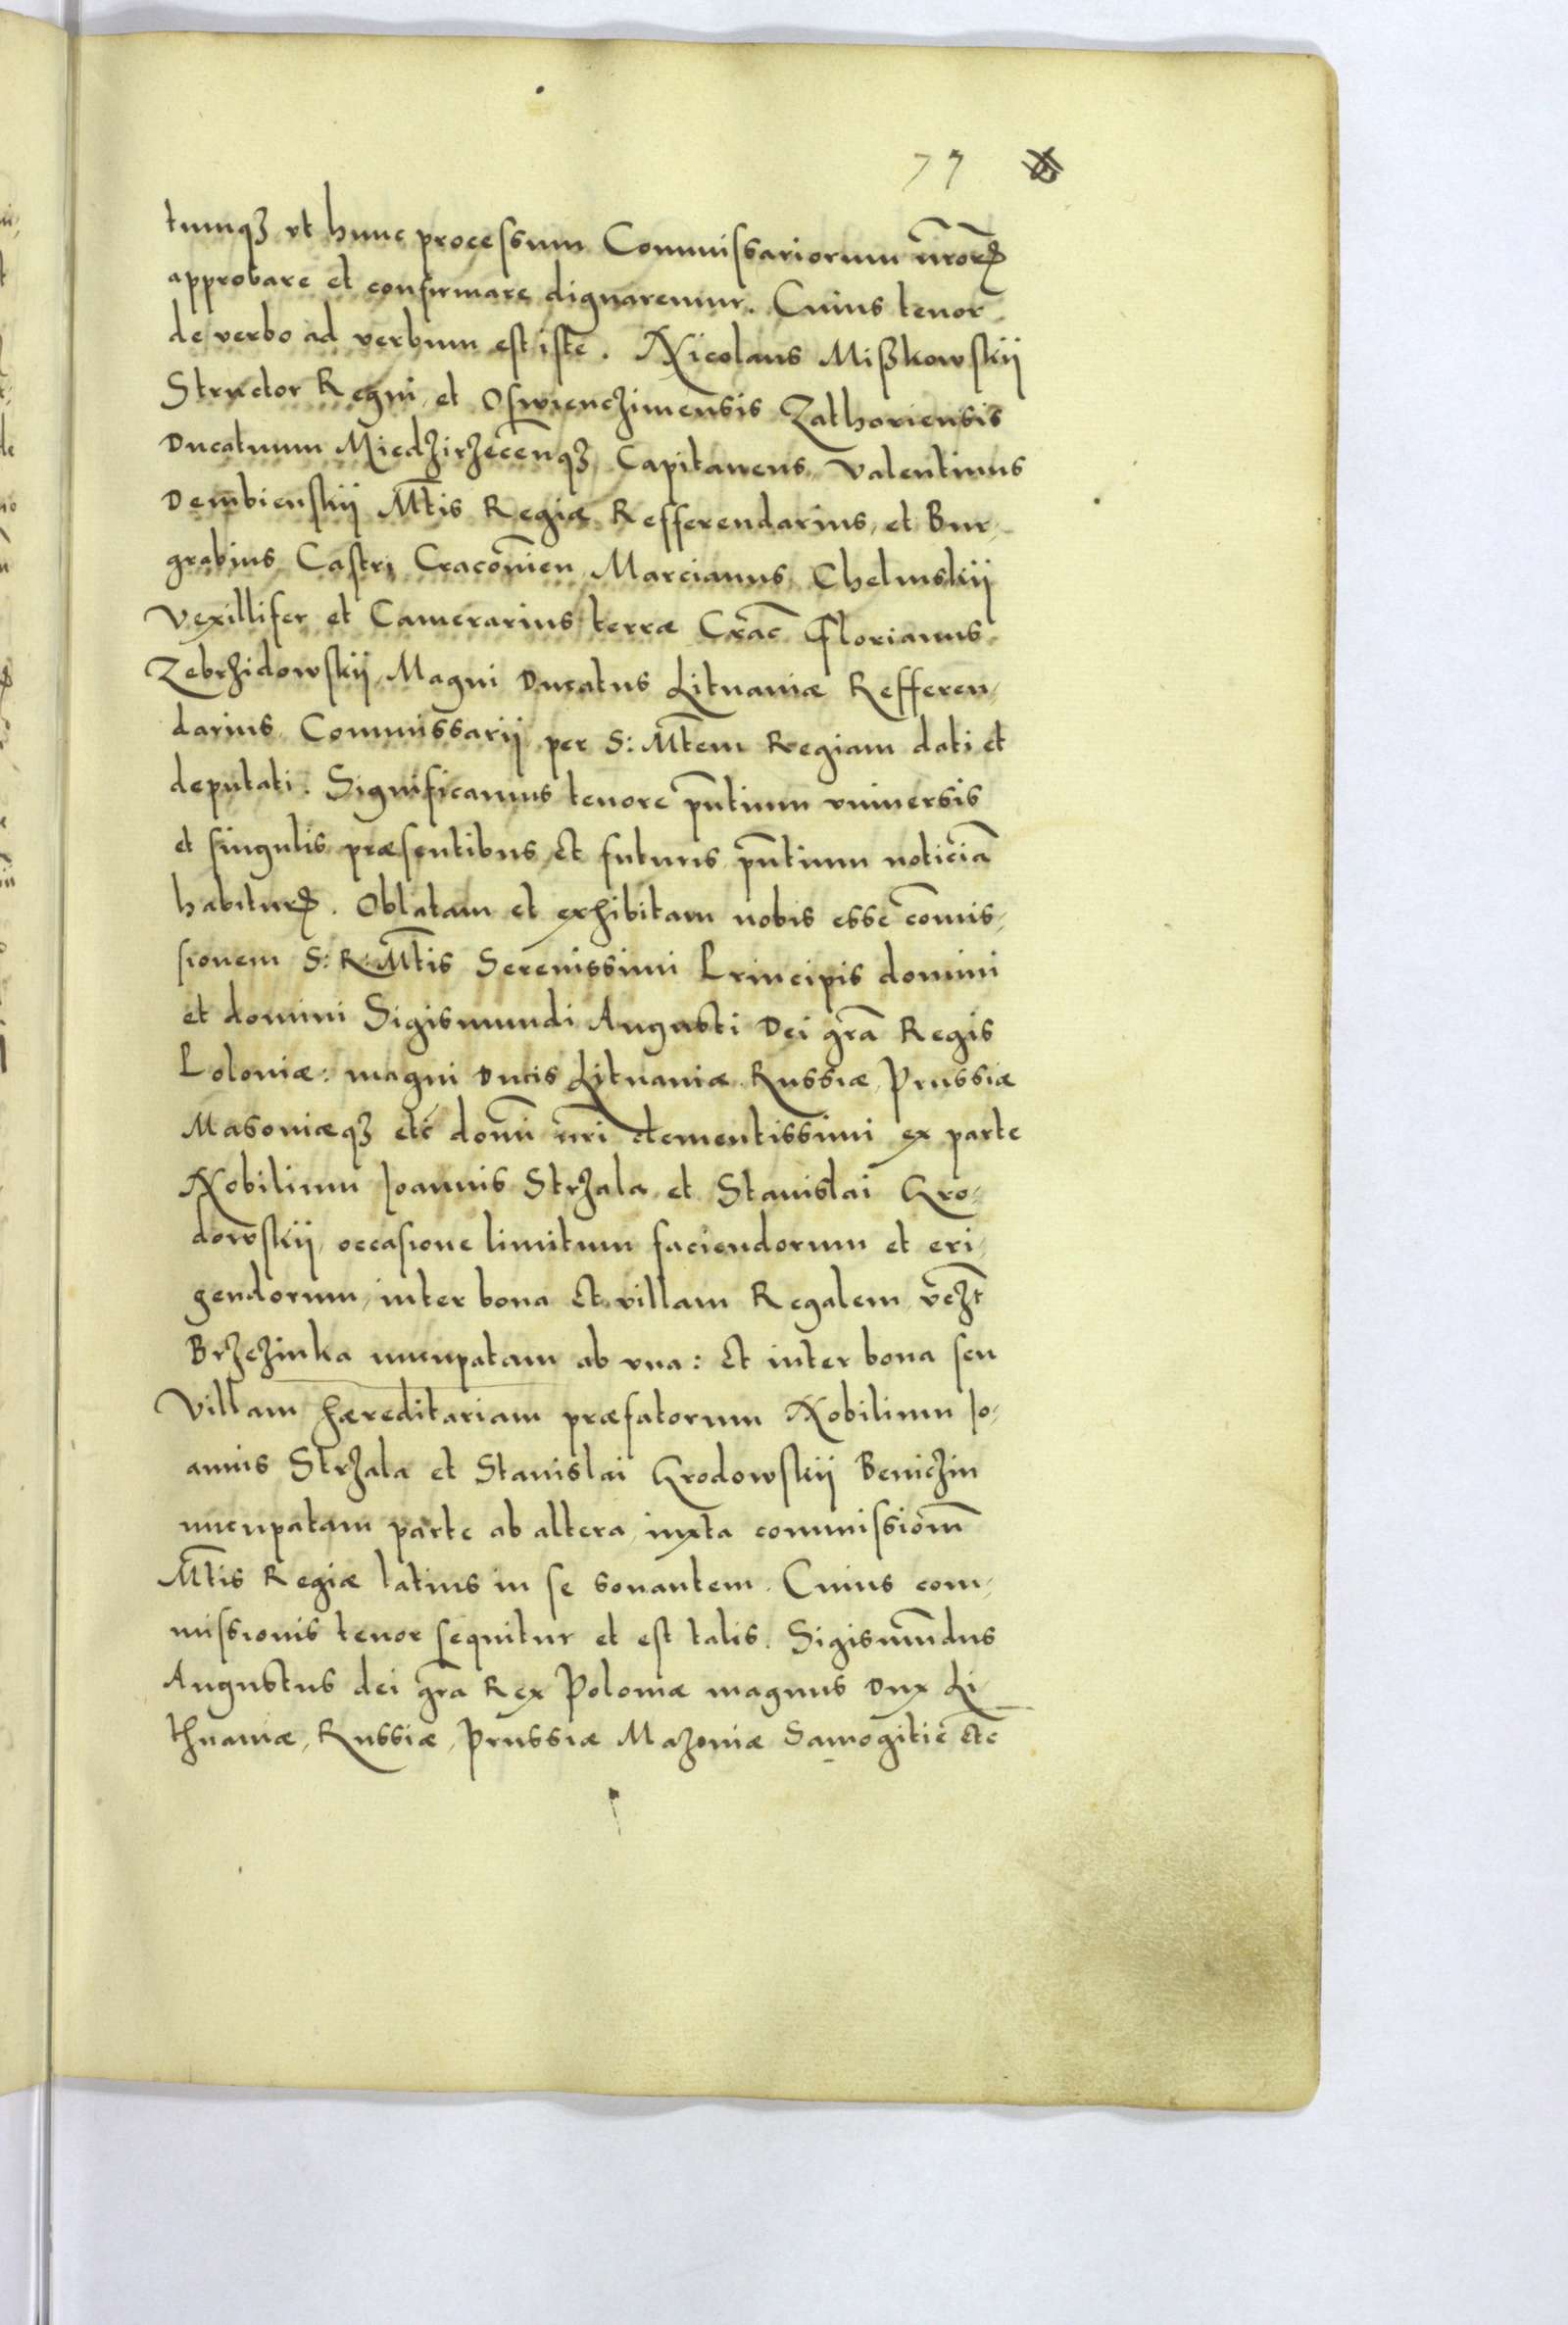 77
tumqꝫ vt hunc processum Commissariorum nr̄orꝝ
approbare et confirmare dignaremur. Cuius tenor
de verbo ad verbum est iste. Nicolaus Mißkowskij
Structor Regni, et Oswienczimensis Zathoriensis
Ducatuum Miedzirzecēnqꝫ Capitaneus, Valentinus
Dembienskij Mt̄is Regiæ Refferendarius, et Bur-
grabius Castri Cracouien̄ Marcianus Chelmskij
Vexillifer et Camerarius terræ Crac̄ Florianus
Zebrzidowskij, Magni Ducatus Lituaniæ Refferen-
darius Commissarij per S: Mt̄em Regiam dati et
deputati. Significamus tenore pn̄tium vniuersis
et singulis præsentibus et futuris pn̄tium noticiā
habiturꝝ. Oblatam et exhibitam nobis esse com̄is-
sionem S: R: Mt̄is Serenissimi Principis domini
et domini Sigismundi Augusti Dei gr̄a Regis
Poloniæ: magni Ducis Lituaniæ Russiæ, Prussiæ
Masouiæqꝫ etc̄ domī nr̄i clementissimi ex parte
Nobilium Joannis Strzala et Stanislai Gro-
dowskij, occasione limitum faciendorum et eri-
gendorum, inter bona et villam Regalem vc̄zt
Brzezinka nuncupatam ab vna: et inter bona seu
Villam hæreditariam præfatorum Nobilium Jo-
annis Strzala et Stanislai Grodowskij Beniczin
nucupatam parte ab altera, iuxta commissionm̄
Mt̄is Regiæ latius in se sonantem. Cuius com-
missionis tenor sequitur et est talis. Sigismūndus
Augustus dei gr̄a Rex Poloniæ magnus Dux Li
thuaniæ, Russiæ, Prussiæ Mazouiæ Samogitiē etc̄